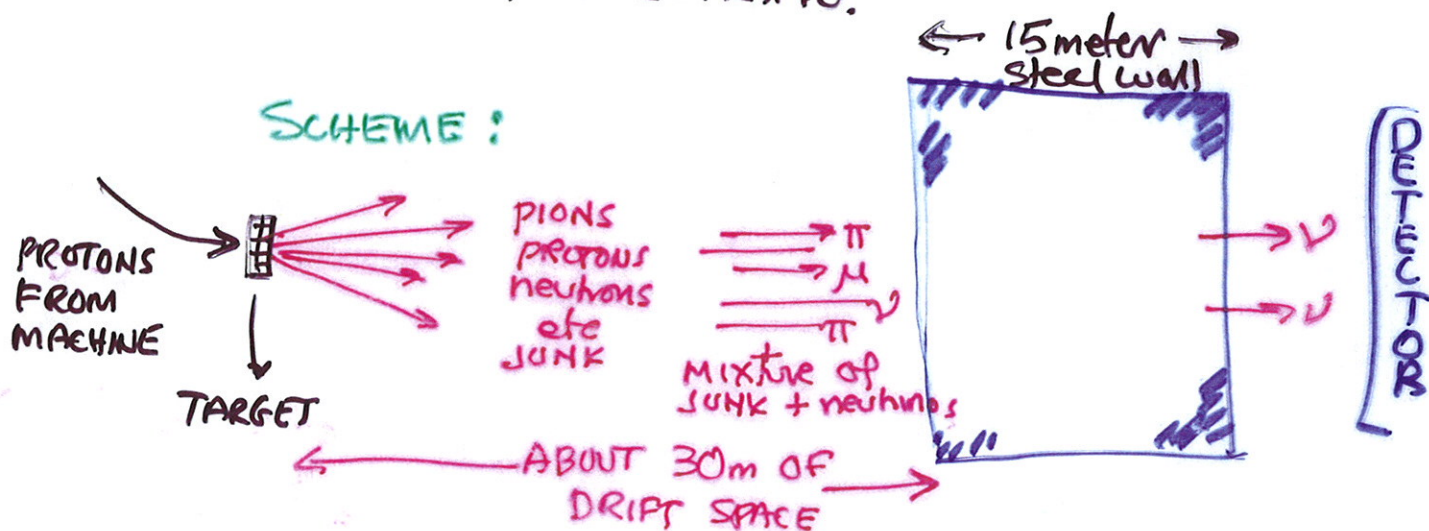 15 meter
steel wall
SCHEME:
PROTONS
FROM
MACHINE
TARGET
PIONS
PROTONS
neutrons
etc
JUNK
π
μ
ν
π
MIXture of
JUNK + neutrinos
ABOUT 30m OF
DRIFT SPACE
ν
ν
DETECTOR